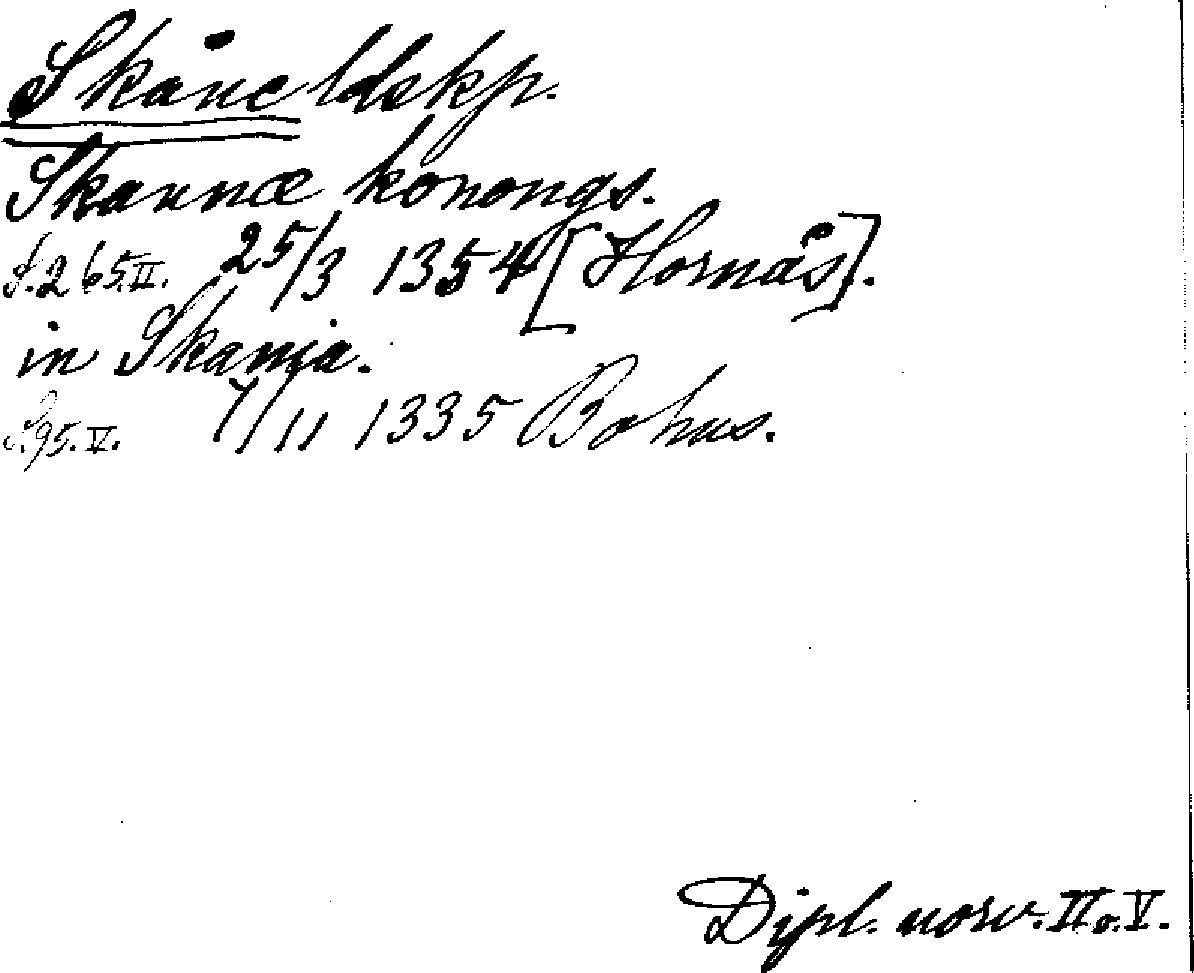 Skåne ldskp.
Skaunæ konongs.
S. 265. II. 25/3 1354 [Hornås].
in Skania.
S. 95. V. 7/11 1335 Bohus.
Dipl. norv. II o. V.